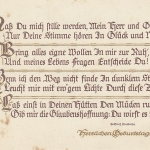 Laß Du mich stille werden, Mein Herr und G
Nur Deine Stimme hören In Glück und N
Bring alles eigne Wollen In mir zur Ruh,
Und meines Lebens Fragen Entscheide Du!
ich den Weg nicht finde In dunklem
Leucht mir mit ew'gem Licht Durch diese
Laß einst in Deinen Hütten Den Müden ru
Gib mir die Glaubenshoffnung: Du wirst es
Herzlichen Geburtstags